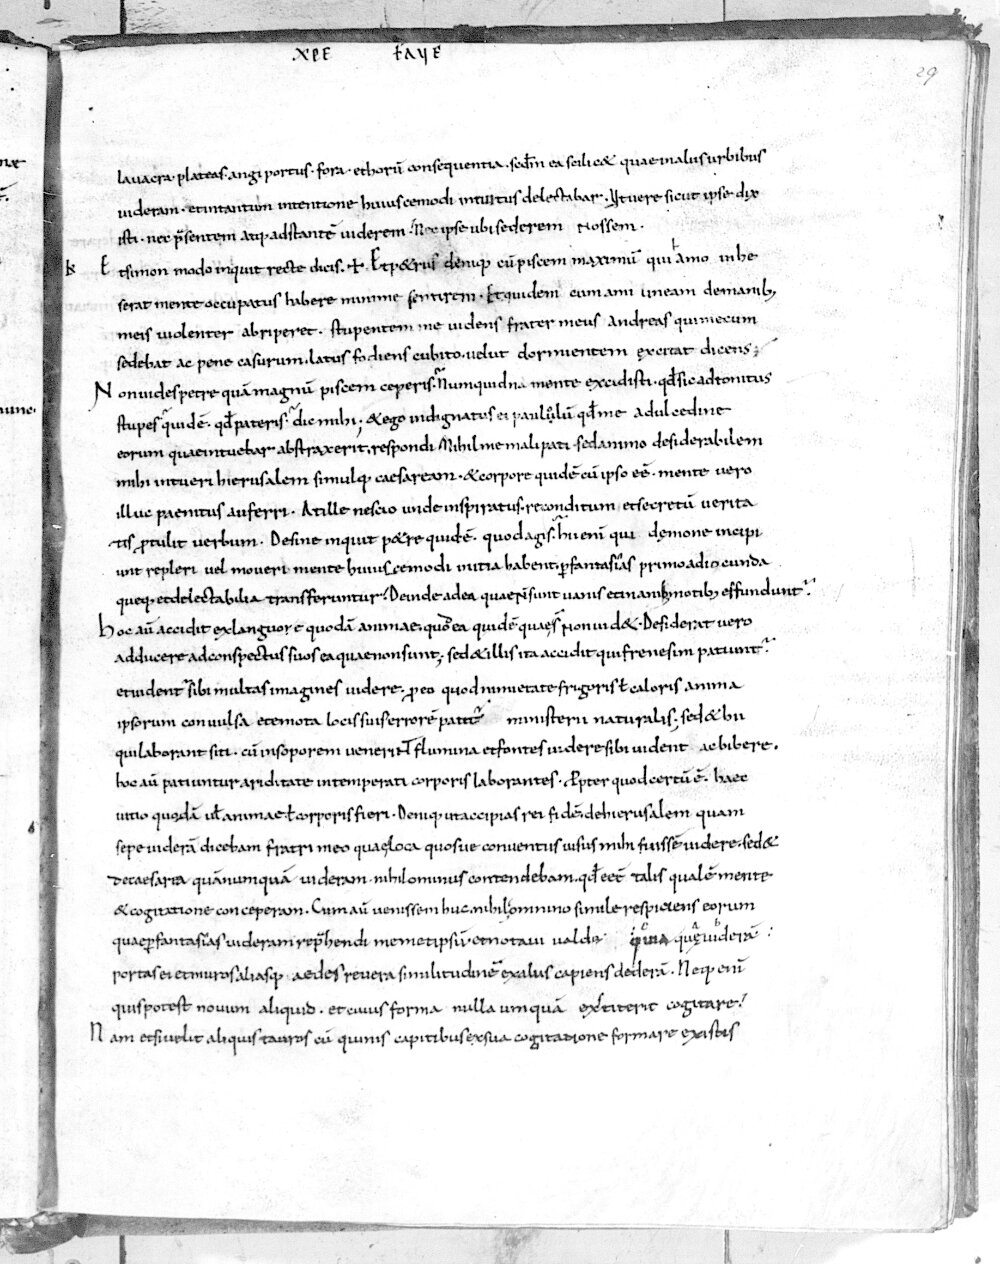 χρε ꝉαγε
29
lavacra · plateas · angiportus · fora · et horū consequentia · scdm̄ ea scilic& quae in alus urbibus
videram · et in tantum intentione huiuscemodi intuitus delectabar · Ut vere sicut ipse dix
isti · nec p̄sentem atq; adstantē viderem · Nec ipse ubi sederem nossem ·
k Et simon modo inquit recte dicis · Et p&rus deniq; cū piscem maximū qui amo inhe
serat mente occupatus habere minime sentirem · Et quidem cum ami lineam de manib;
meis violenter abriperet · stupentem me videns frater meus Andreas qui mecum
sedebat ac pene casurum · latus fodiens cubito · velut dormientem excitat dicens ;
Non vides petre quā magnū piscem ceperis · Numquidna mente excidisti · qđ sic adtonitus
stupes quidē · qđ pateris · dic mihi ; & ego indignatus ei paululū qđ me a dulcedine
eorum quae intuebar abstraxerit · respondi Nihil me mali pati · sed animo desiderabilem
mihi intueri hierusalem simulq; caesaream · & corpore quidē cū ipso eē · mente vero
illuc paenitus auferri · At ille nescio unde inspiratus · reconditum et secretū verita
tis p̄tulit verbum · Desine inquit p&re quidē · quod agis · hi enī qui demone incipi
unt repleri vel moveri mente huiuscemodi initia habent · p̄ fantasias primo ad iocunda
queq; et delectabilia transferuntur · Deinde ad ea quae n̄ sunt vanis et inanib; motib; effundunt ·
hoc aū accidit ex languore quodā animae · quo ea quidē quae s̄ non vid& · Desiderat vero
adducere ad conspectus suos ea quae non sunt ; sed & illis ita accidit qui frenesim patiunt ·
et vident sibi multas imagines videre · p̄ eo quod nimietate frigoris ꝉ caloris anima
ipsorum convulsa et emota locis suis errorē patit ministerii naturalis ; sed & hii
qui laborant siti · cū in soporem venerint flumina et fontes videre sibi vident ac bibere ·
hoc aū patiuntur ariditate intemperati corporis laborantes · Propter quod certū ē · haec
vitio quodā vel animae ꝉ corporis fieri · Deniq; ut accipias rei fidē · de hierusalem quam
sepe viderā dicebam fratri meo quae loca quosve conventus visus mihi fuissē videre · sed &
de caesarea quā numquā videram · nihilominus contendebam · qđ eēt talis qualē mente
& cogitatione conceperam · Cum aū venissem huc · nihil omnino simile respiciens eorum
quae p̄ fantasias videram rep̄hendi memetipsū · et notavi valde · quia quę viderā ·
portas ei et muros aliasq; aedes revera similitudinē ex alus capiens dederā · Neq; enī
quis potest novum aliquid · et cuius forma nulla umquā extiterit cogitare ·
Nam etsi velit aliquis tauros cū quinis capitibus ex sua cogitatione formare ex istis